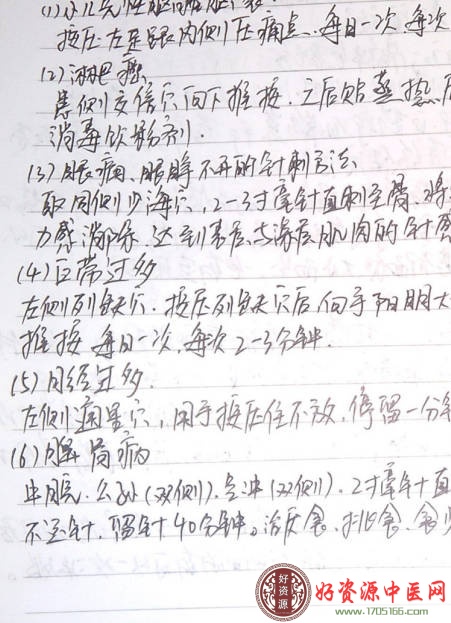 (1)小儿先性
按压左足跟内侧压痛点、每日一次、每次
(2)淋巴癌、
患侧交信穴向下推按、之后贴蒸热
消毒饮粉剂.
(3)眼病、眼睁不开的针刺方法
取同侧少海穴,2-3寸毫针直刺至骨、将
力感消除、达到基层与深层肌肉的针感
(4)白带过多
左侧列缺穴、按压列缺穴后向手阳明大
推按、每日一次、每次2-3分钟.
(5)月经过多.
左侧通里穴,用手按压住不放、停留一分钟
(6)肠胃病
中脘、公孙(双侧)、气冲(双侧)、2寸毫针直
不运针、留针40分钟。治厌食、拒食、食少
好资源
好资源中医网
www.1705166.com